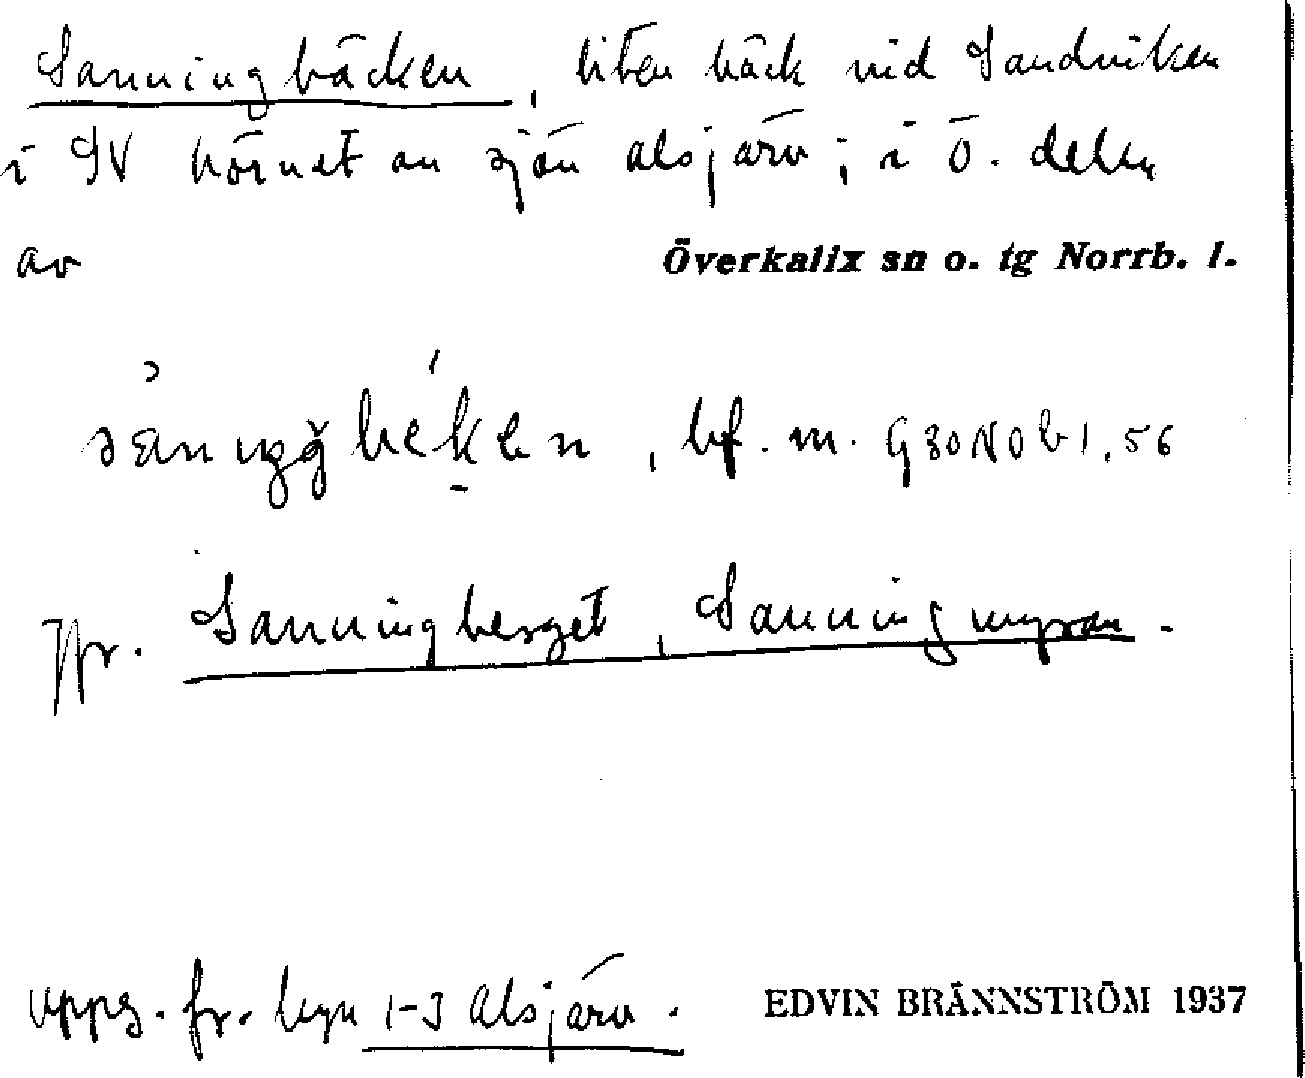 Sanningbäcken, liten bäck vid Sandviken
i SV hörnet av sjön Alsjärv; i Ö. delen
av Överkalix sn o. tg Norrb. l.
bf. m.
Jfr. Sanningberget, Sanningmyran.
Uppg. fr. byn 1-3 Alsjärv. EDVIN BRÄNNSTRÖM 1937